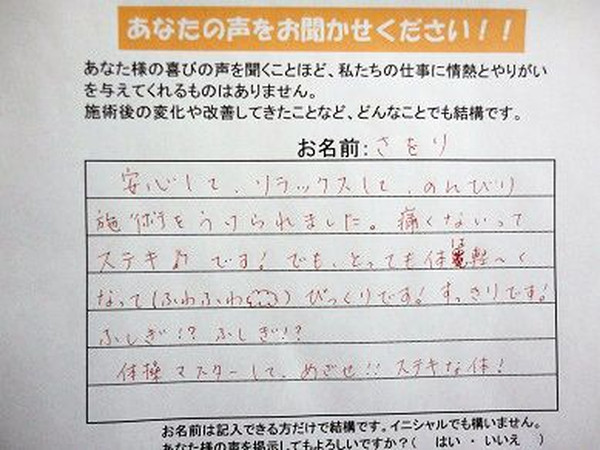 あなたの声をお聞かせください！！
あなた様の喜びの声を聞くことほど、私たちの仕事に情熱とやりがい
を与えてくれるものはありません。
施術後の変化や改善してきたことなど、どんなことでも結構です。
お名前：さをり
安心して、リラックスして、のんびり
施術をうけられました。痛くないって
ステキ♪です！でも、とっても体は軽〜く
なって(ふわふわ)びっくりです！すっきりです！
ふしぎ!?ふしぎ!?
体操マスターして、めざせ!!ステキな体！
お名前は記入できる方だけで結構です。イニシャルでも構いません。
あなた様の声を掲示してもよろしいですか？(　はい ・ いいえ　)